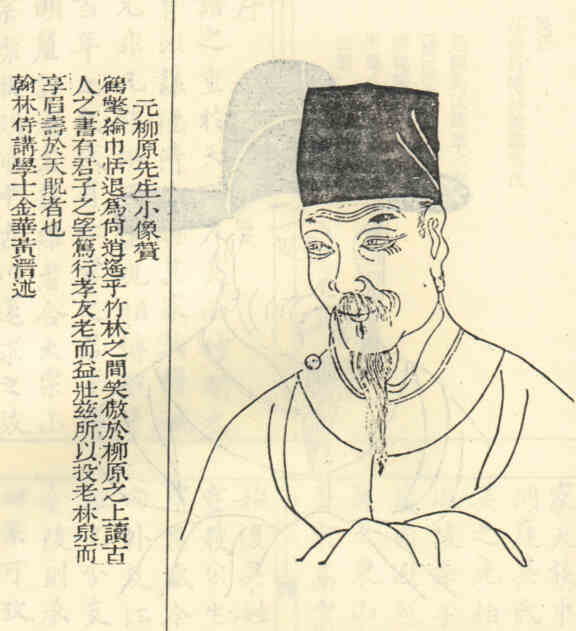 元柳原先生小像贊
鶴氅綸巾恬退爲尙逍遙乎竹林之間笑傲於柳原之上讀古
人之書有君子之望篤行孝友老而益壯玆所以投老林泉而
享眉壽於天貺者也
翰林侍講學士金華黃溍述